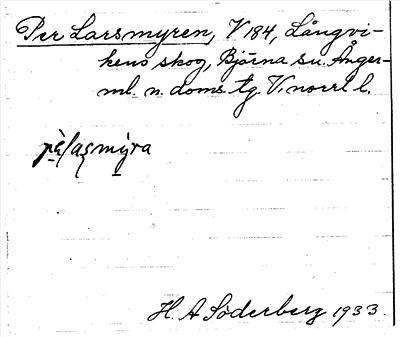 Per Larsmyren, V 184, Långvi-
kens skog, Björna sn. Ånger-
ml. n. doms tg. V. norrl l.
pè̱lasmy̱ra
H. A Söderberg 1933.